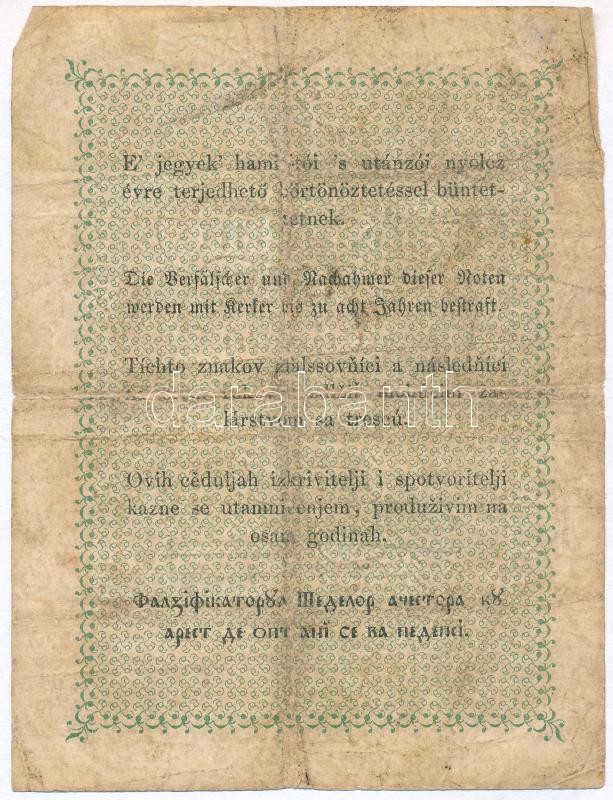 E' jegyek' hami tói 's utánzói nyolcz
évre terjedhető börtönöztetéssel büntet-
tetnek.
Die Verfälscher und Nachahmer dieser Noten
werden mit Kerker bis zu acht Jahren bestraft.
Tíchto znakov zfalssovňíci a následňíci
za-
lárstvom sa trescú.
Ovih cěduljah izkrivitelji i spotvoritelji
kazne se utamničenjem, produživim na
osam godinah.
Фалꙁіфікаторꙋл Шеделор ачестора кꙋ
арест де опт анĭ се ва педепсі.
databanth